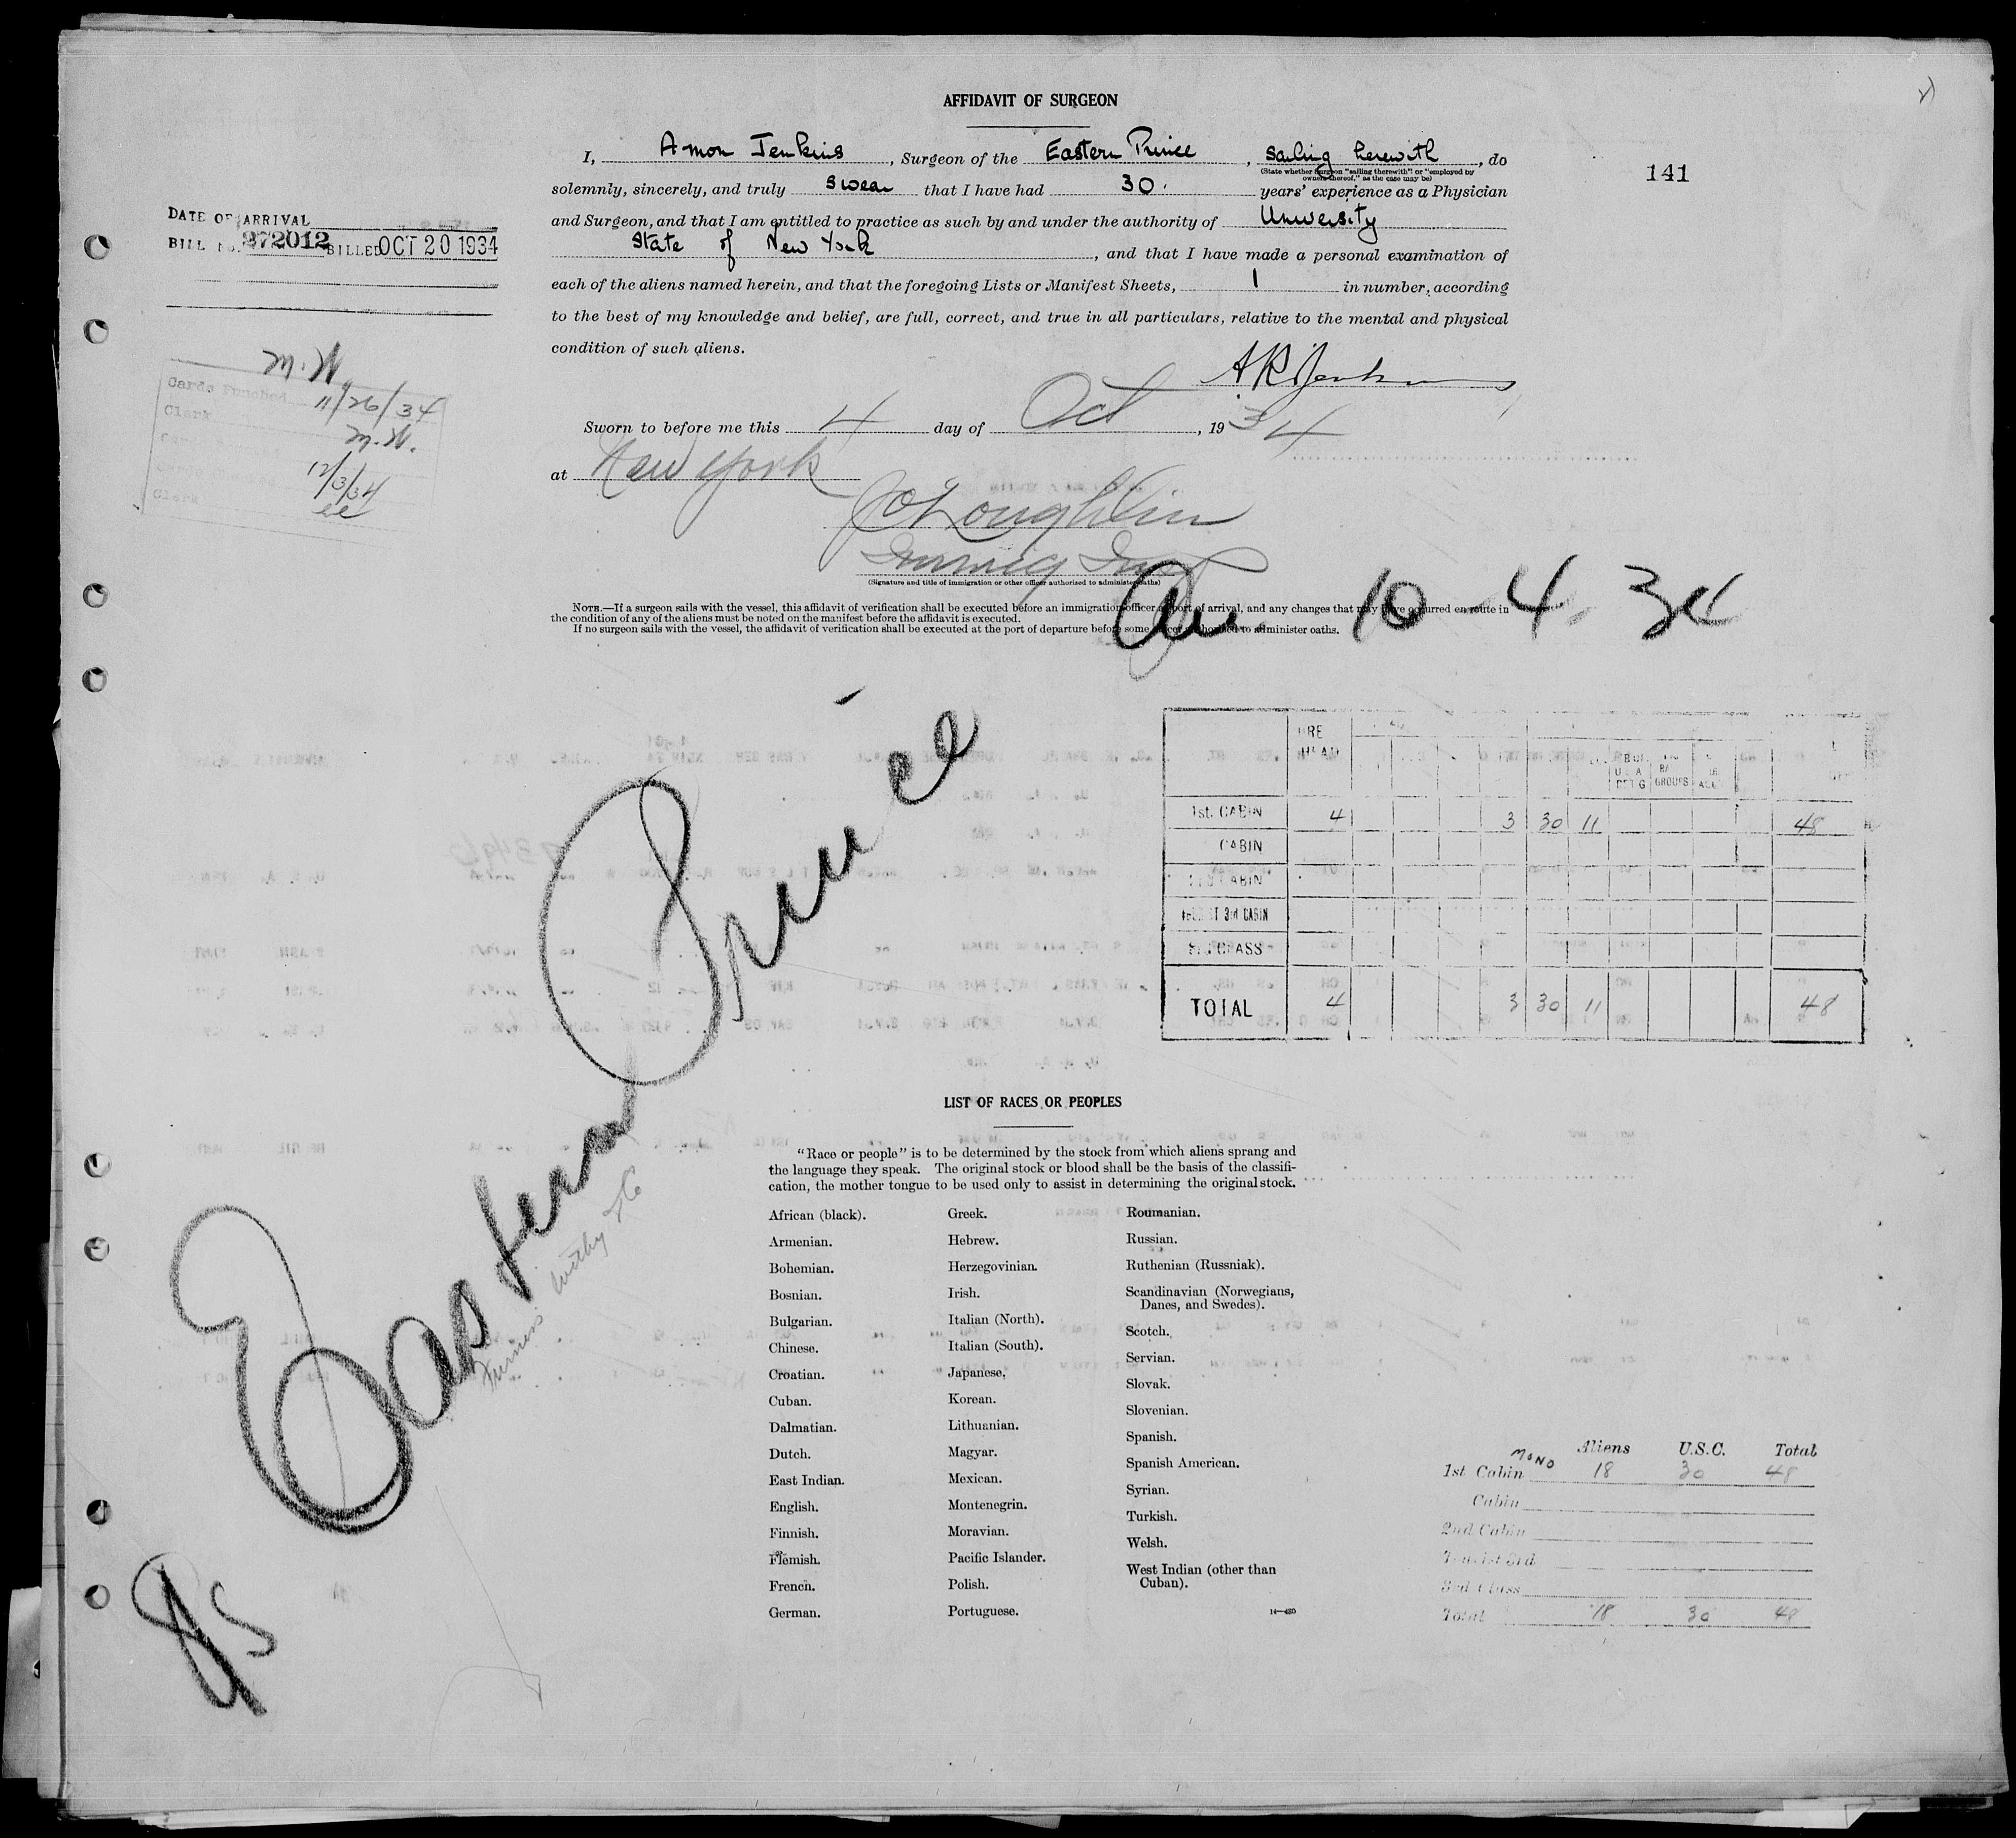 AFFIDAVIT OF SURGEON
141
I, Amon Jenkins, Surgeon of the Eastern Prince, sailing herewith, do
(State whether Surgeon "sailing therewith" or "employed by
owners thereof," as the case may be)
solemnly, sincerely, and truly swear that I have had 30. years' experience as a Physician
and Surgeon, and that I am entitled to practice as such by and under the authority of University
State of New York, and that I have made a personal examination of
each of the aliens named herein, and that the foregoing Lists or Manifest Sheets, 1 in number, according
to the best of my knowledge and belief, are full, correct, and true in all particulars, relative to the mental and physical
condition of such aliens.
DATE OF ARRIVAL
BILL NO. 272012 BILLED OCT 20 1934
M.W.
Cards Punched 11/26/34
Clerk M.W.
12/3/34
Clerk ee
A R Jenkins
Sworn to before me this 4 day of Oct, 1934
at New York
O'Loughlin
Immig Insp
(Signature and title of immigration or other officer authorized to administer oaths)
NOTE.—If a surgeon sails with the vessel, this affidavit of verification shall be executed before an immigration officer at port of arrival, and any changes that may have occurred en route in
the condition of any of the aliens must be noted on the manifest before the affidavit is executed.
If no surgeon sails with the vessel, the affidavit of verification shall be executed at the port of departure before some officer authorized to administer oaths.
10-4-34
Eastern Prince
Furness Withy
1st. CABIN 4 3 30 11 48
CABIN
2ND CABIN
TOURIST 3rd CABIN
3RD CLASS
TOTAL 4 3 30 11 48
GROUPS
LIST OF RACES OR PEOPLES
"Race or people" is to be determined by the stock from which aliens sprang and
the language they speak. The original stock or blood shall be the basis of the classifi-
cation, the mother tongue to be used only to assist in determining the original stock.
African (black).
Armenian.
Bohemian.
Bosnian.
Bulgarian.
Chinese.
Croatian.
Cuban.
Dalmatian.
Dutch.
East Indian.
English.
Finnish.
Flemish.
French.
German.
Greek.
Hebrew.
Herzegovinian.
Irish.
Italian (North).
Italian (South).
Japanese.
Korean.
Lithuanian.
Magyar.
Mexican.
Montenegrin.
Moravian.
Pacific Islander.
Polish.
Portuguese.
Roumanian.
Russian.
Ruthenian (Russniak).
Scandinavian (Norwegians,
Danes, and Swedes).
Scotch.
Servian.
Slovak.
Slovenian.
Spanish.
Spanish American.
Syrian.
Turkish.
Welsh.
West Indian (other than
Cuban).
14—430
Aliens U.S.C. Total
1st Cabin MONO 18 30 48
Cabin
2nd Cabin
Tourist 3rd
3rd Class
Total 18 30 48